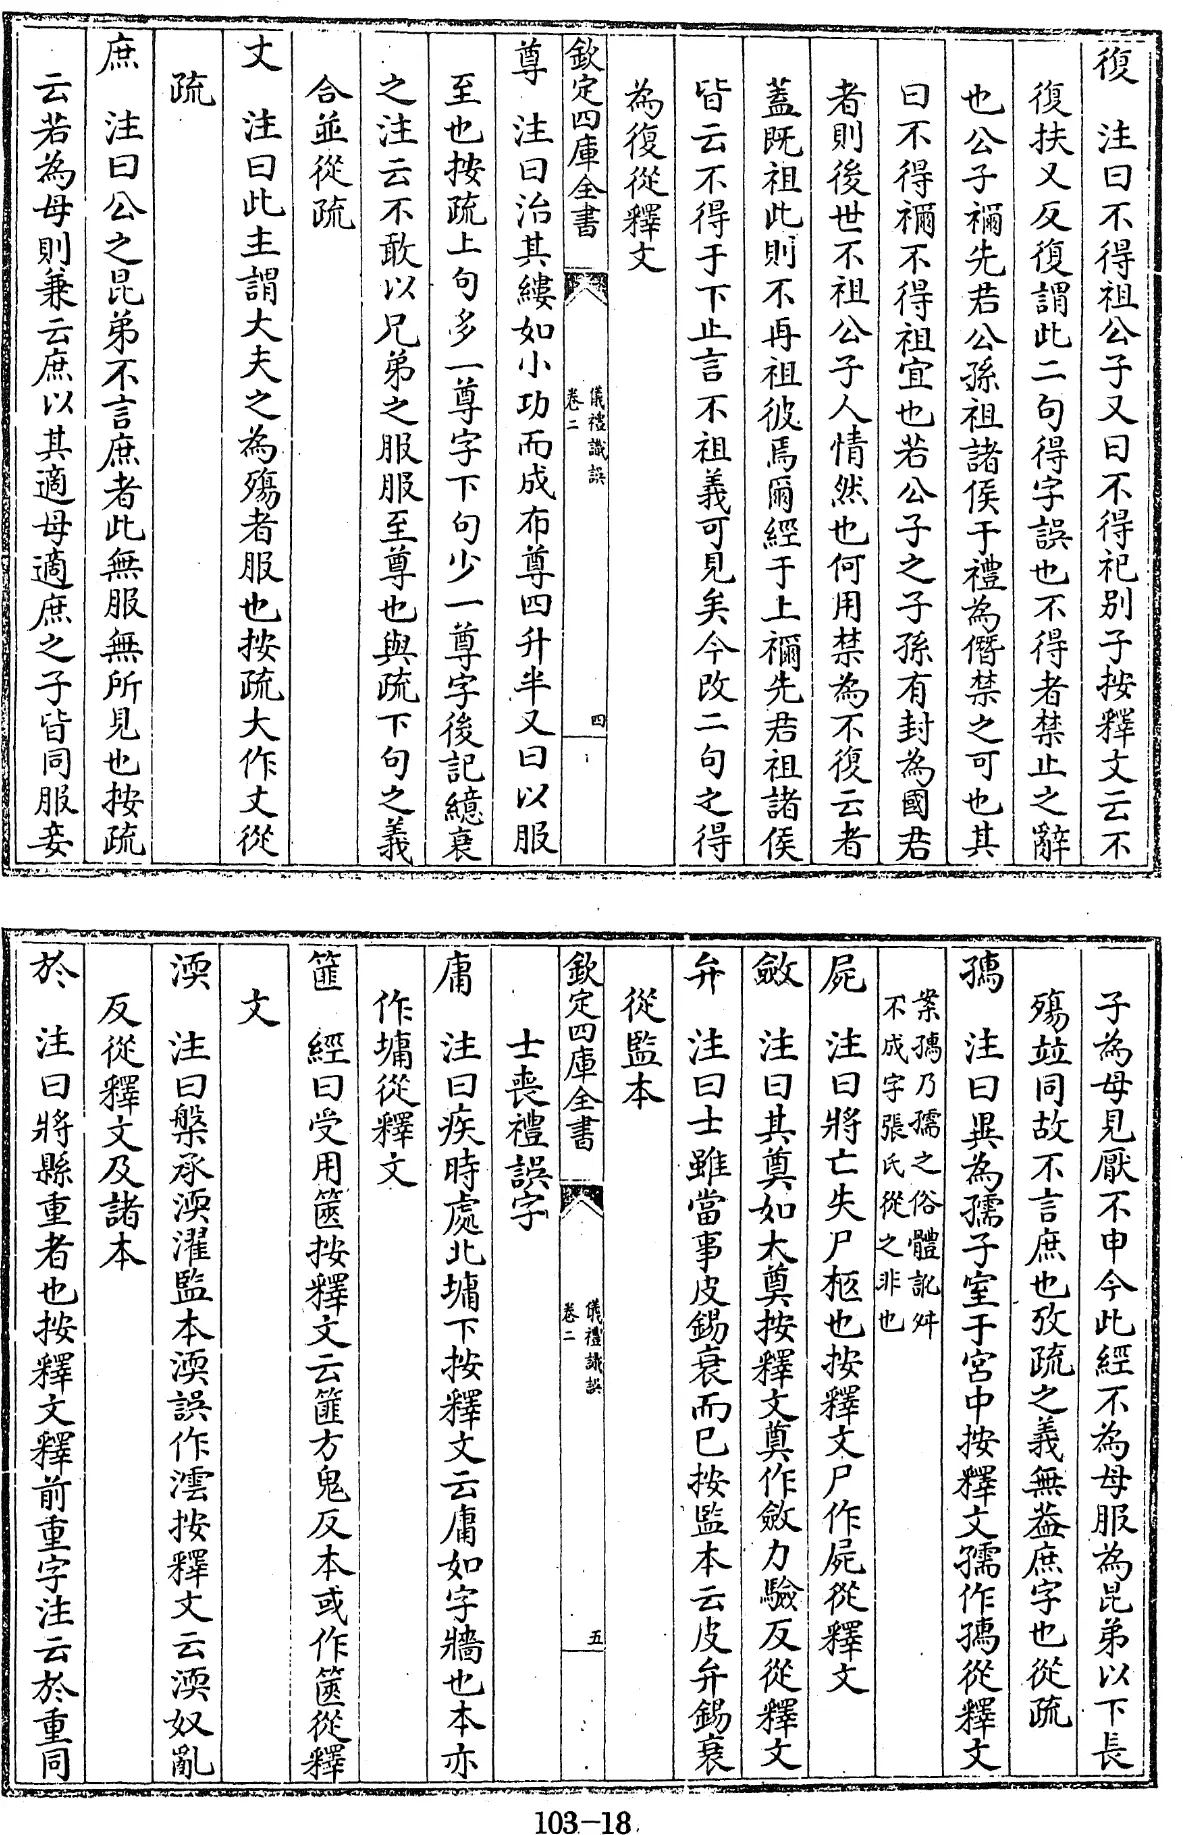 復　注曰不得祖公子又曰不得祀别子按釋文云不
復扶又反復謂此二句得字誤也不得者禁止之辭
也公子禰先君公孫祖諸侯于禮為僭禁之可也其
曰不得禰不得祖宜也若公子之子孫有封為國君
者則後世不祖公子人情然也何用禁為不復云者
蓋既祖此則不再祖彼焉爾經于上禰先君祖諸侯
皆云不得于下止言不祖義可見矣今改二句之得
為復從釋文
欽定四庫全書
儀禮識誤
卷二
四
尊　注曰治其縷如小功而成布尊四升半又曰以服
至也按疏上句多一尊字下句少一尊字後記繐衰
之注云不敢以兄弟之服服至尊也與疏下句之義
合並從疏
丈　注曰此主謂大夫之為殤者服也按疏大作丈從
疏
庶　注曰公之昆弟不言庶者此無服無所見也按疏
云若為母則兼云庶以其適母適庶之子皆同服妾
子為母見厭不申今此經不為母服為昆弟以下長
殤竝同故不言庶也攷疏之義無葢庶字也從疏
𡦗　注曰異為孺子室于宮中按釋文孺作𡦗從釋文
案𡦗乃孺之俗體訛舛
不成字張氏從之非也
屍　注曰將亡失尸柩也按釋文尸作屍從釋文
斂　注曰其奠如大奠按釋文奠作斂力驗反從釋文
弁　注曰士雖當事皮錫衰而已按監本云皮弁錫衰
從監本
欽定四庫全書
儀禮識誤
卷二
五
士喪禮誤字
庸　注曰疾時處北墉下按釋文云庸如字牆也本亦
作墉從釋文
篚　經曰受用篋按釋文云篚方鬼反本或作篋從釋
文
渜　注曰槃承渜濯監本渜誤作澐按釋文云渜奴亂
反從釋文及諸本
於　注曰將縣重者也按釋文釋前重字注云於重同
103-18